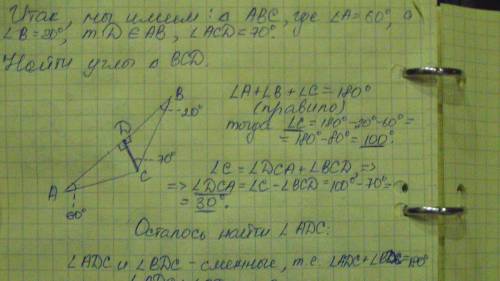 Итак, мы имеем: Δ ABC, где ∠A=60°, а
∠B=20°, т.D∈AB, ∠ACD=70°.
Найти углы Δ BCD.
B
20°
D
70°
C
A
60°
∠A+∠B+∠C=180°
(правило)
тогда ∠C=180°-20°-60°=
=180°-80°=100°.
∠C=∠DCA+∠BCD=>
=>∠DCA=∠C-∠BCD=100°-70°=
=30°.
Осталось найти ∠ADC:
∠ADC и ∠BDC - смежные, т.е. ∠ADC+∠BDC=180°